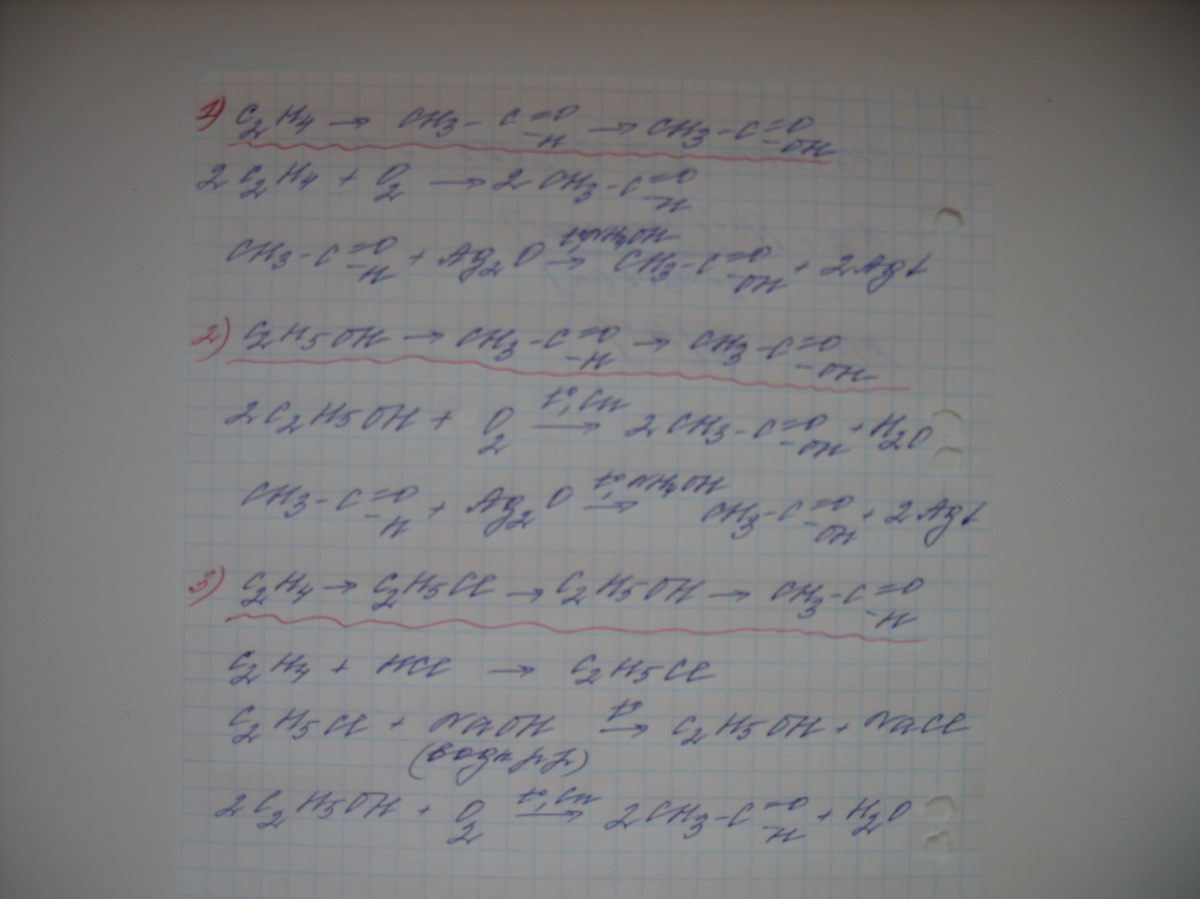 1) C2H4 → CH3-C=O-H → CH3-C=O-OH
2C2H4 + O2 → 2CH3-C=O-H
CH3-C=O-H + Ag2O t°,NH4OH → CH3-C=O-OH + 2Ag↓
2) C2H5OH → CH3-C=O-H → CH3-C=O-OH
2C2H5OH + O2 t°,Cu → 2CH3-C=O-OH + H2O
CH3-C=O-H + Ag2O t°,NH4OH → CH3-C=O-OH + 2Ag↓
3) C2H4 → C2H5Cl → C2H5OH → CH3-C=O-H
C2H4 + HCl → C2H5Cl
C2H5Cl + NaOH t° → C2H5OH + NaCl
(водн. р-р)
2C2H5OH + O2 t°,Cu → 2CH3-C=O-H + H2O